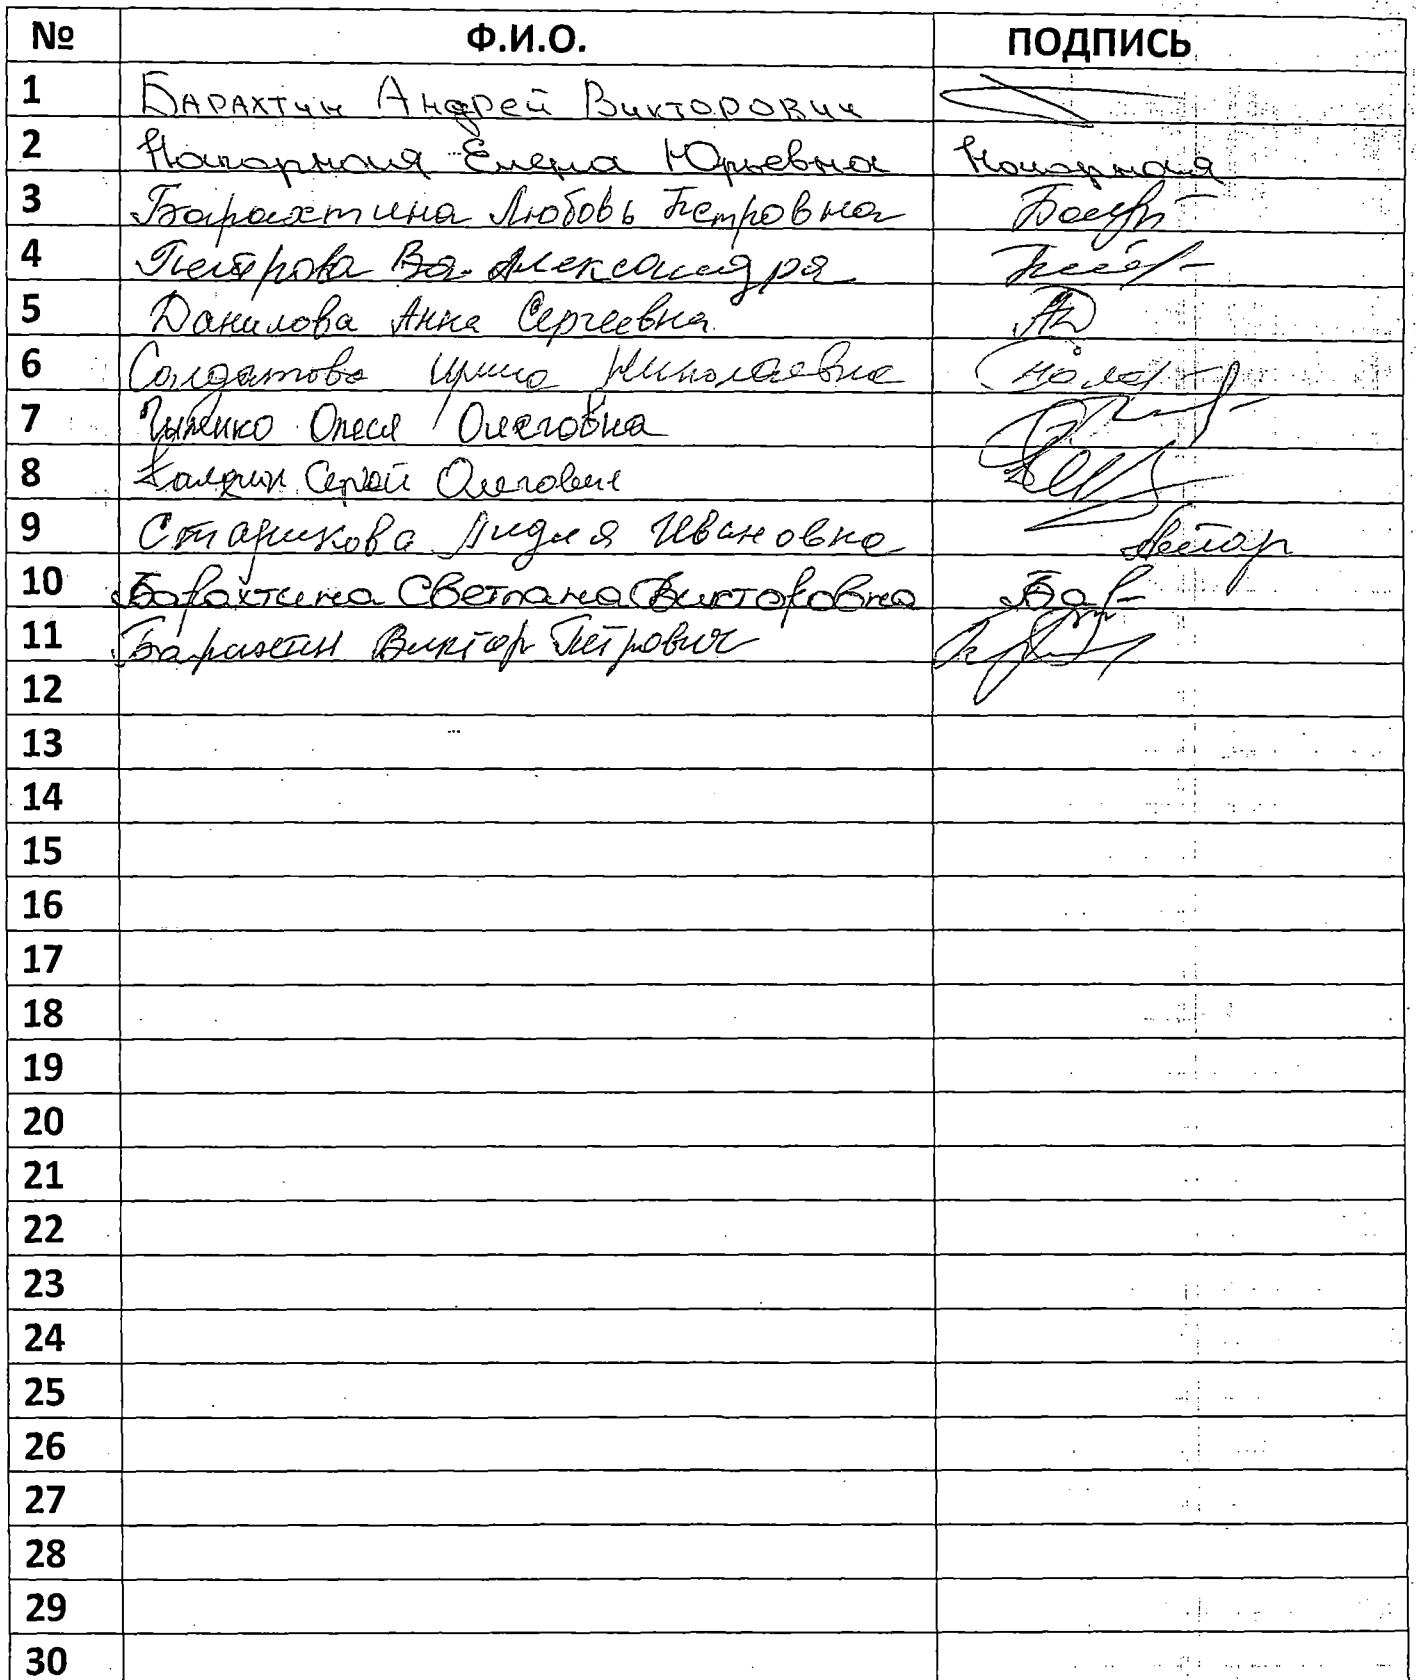 № Ф.И.О. ПОДПИСЬ
1 БАРАХТИН АНДРЕЙ ВИКТОРОВИЧ
2 Нагорная Елена Юрьевна Нагорная
3 Барахтина Любовь Петровна
4 Петрова Александра
5 Данилова Анна Сергеевна
6 Солдатова Ирина Николаевна
7 Олеся Олеговна
8 Сергей Олегович
9 Старикова Лидия Ивановна
10 Барахтина Светлана Викторовна Бар
11 Барахтин Виктор Петрович
12
13
14
15
16
17
18
19
20
21
22
23
24
25
26
27
28
29
30